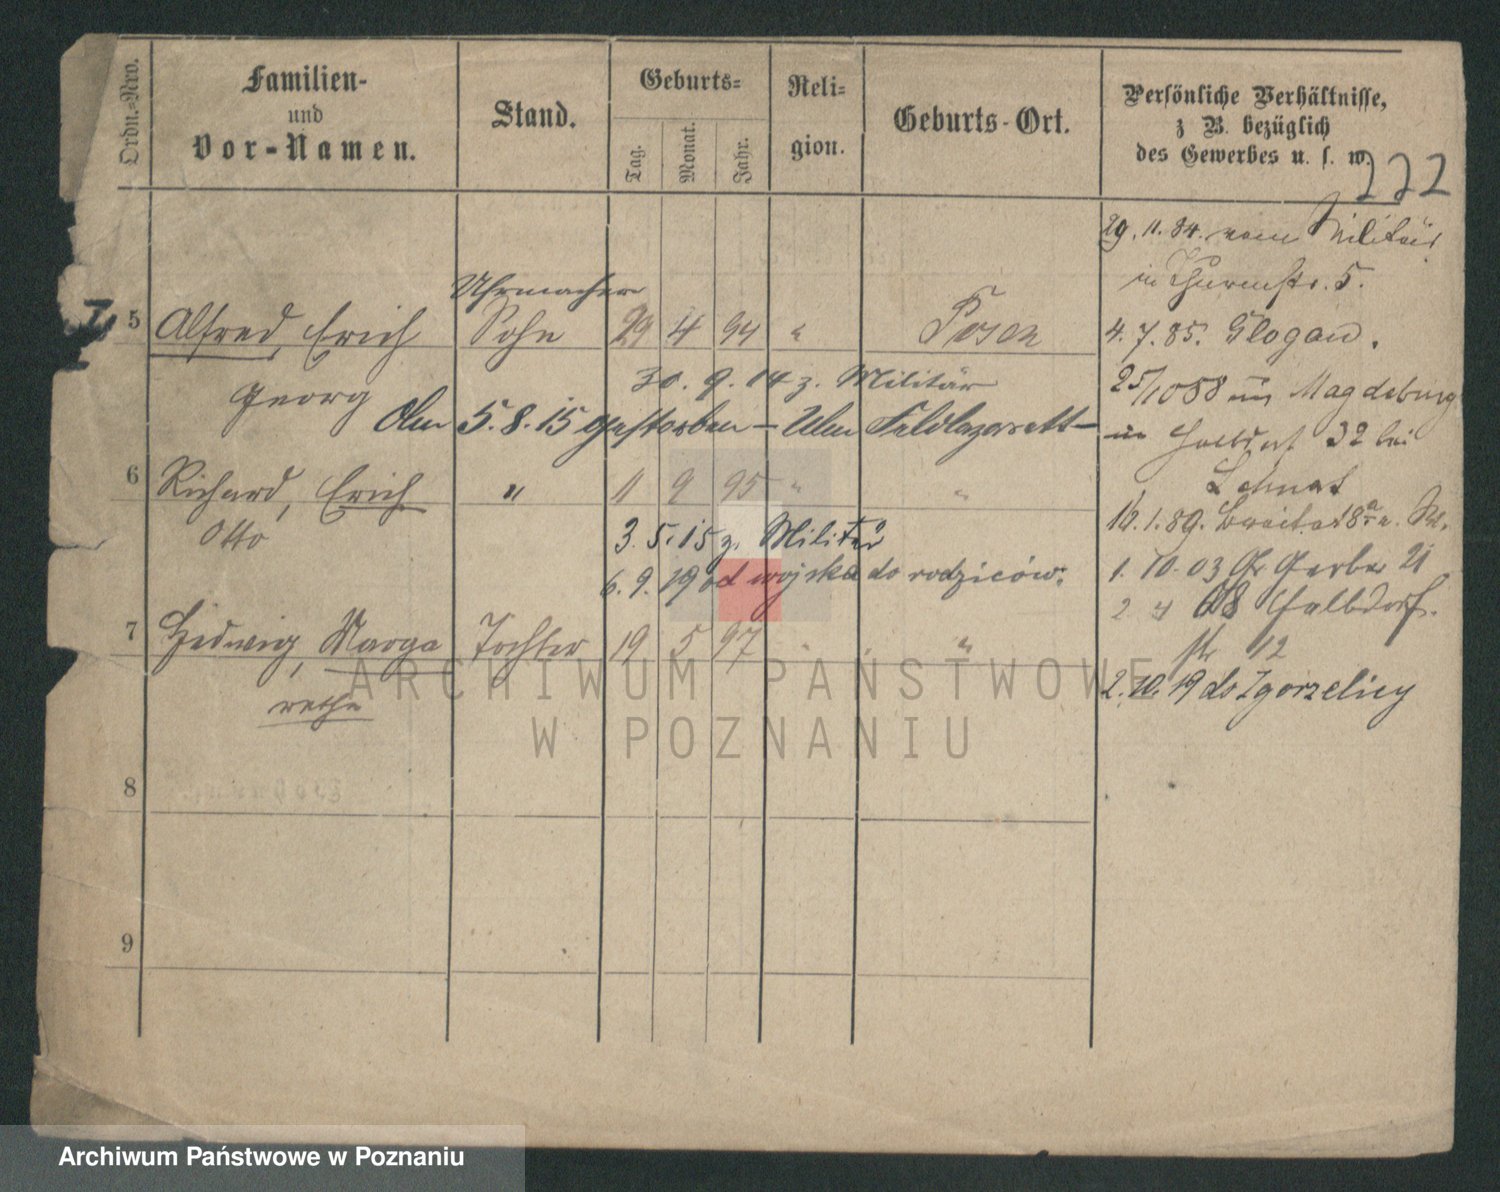 Ordn.-Nro.
Familien-
und
Vor-Namen.
Stand.
Geburts-
Tag.
Monat.
Jahr.
Reli-
gion.
Geburts-Ort.
Persönliche Verhältnisse,
z B. bezüglich
des Gewerbes u. s. w.
222
29. 11. 84. vom Militär
in Thurmstr. 5.
4. 7. 85. Glogau.
25/10 88 Magdeburg
32 bei
16. 1. 89. 18a
1. 10. 03 Gr Gerber 21
2 4 08 Halbdorf-
str 12
2. 10. 19 do Zgorzelicy
5 Alfred, Erich Uhrmacher Sohn 29 4 94 " Posen
Georg
30. 9. 14 z. Militär
5. 8. 15 gestorben - Ulm Feldlazarett -
6 Richard, Erich " 11 9 95 " "
Otto
3. 5. 15 z. Militär
6. 9. 19 od wojska do rodziców.
7 Hedwig, Marga Tochter 19 5 97 " "
rethe
8
9
ARCHIWUM PAŃSTWOWE
W POZNANIU
Archiwum Państwowe w Poznaniu